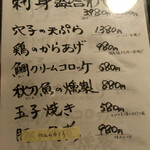 刺身盛合わせ
3980円
穴子の天ぷら 1380円
鶏のからあげ 980円
鯛クリームコロッケ 680円
秋刀魚の燻製 880円
玉子焼き 580円
980円